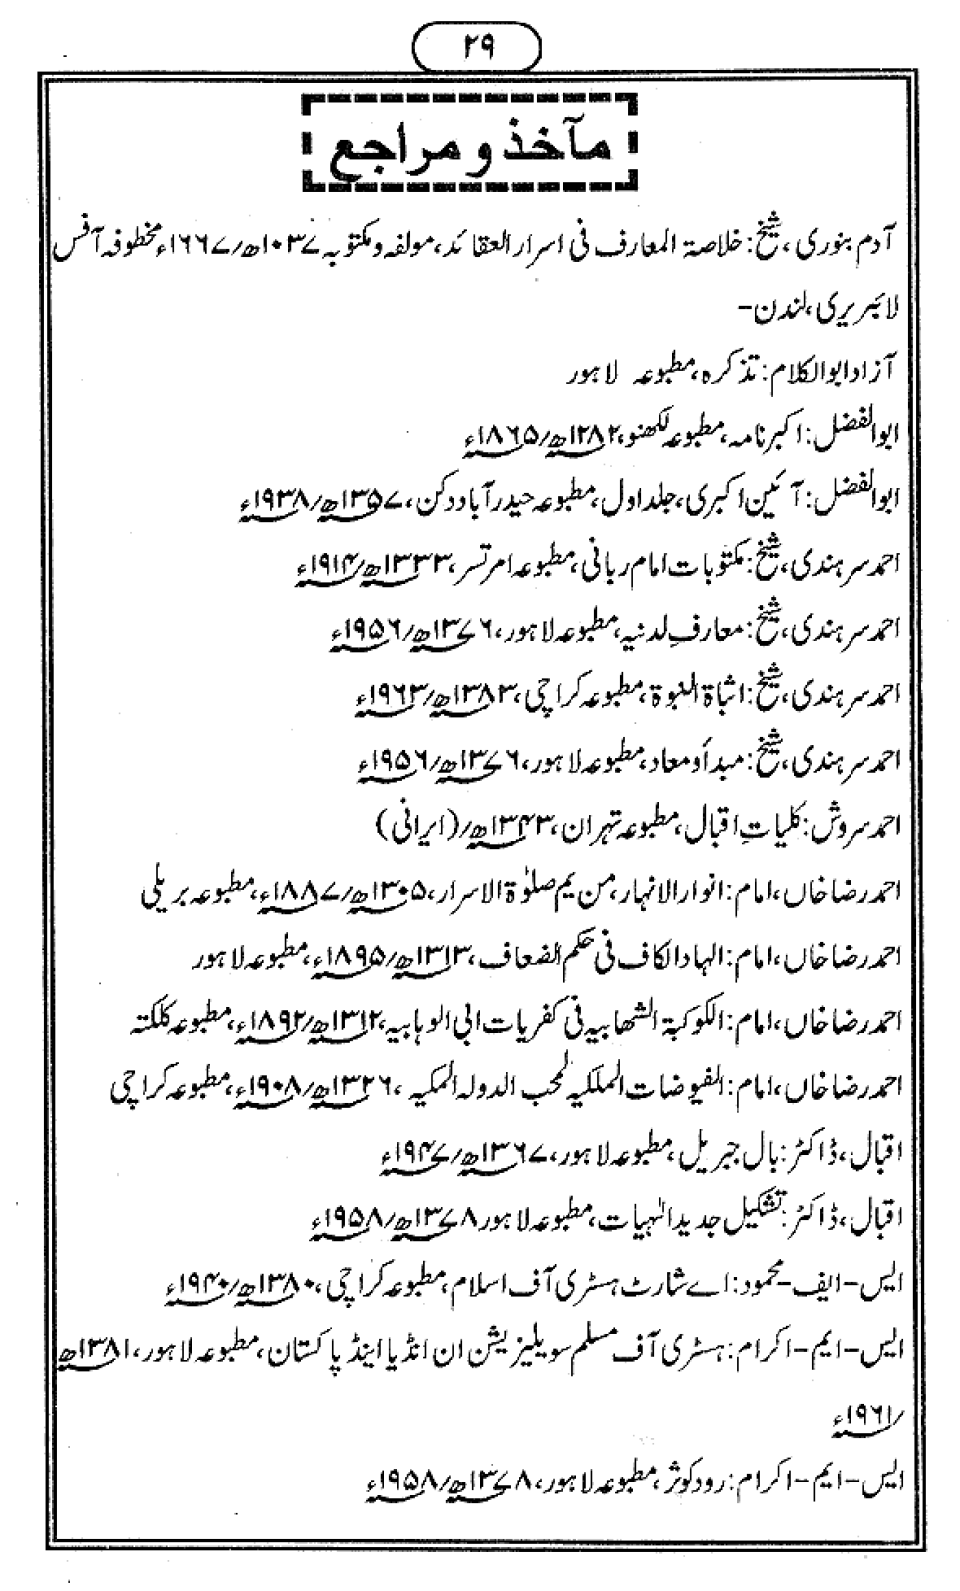 ۲۹
مآخذ و مراجع
آدم بنوری، شیخ: خلاصۃ المعارف فی اسرار العقائد، مولفہ و مکتوبہ ۱۰۳۷ھ/۱۶۶۷ء مخطوفہ آفس
لائبریری، لندن-
آزاد ابوالکلام: تذکرہ، مطبوعہ لاہور
ابوالفضل: اکبر نامہ، مطبوعہ لکھنو، ۱۲۸۲ھ/۱۸۶۵ء
ابوالفضل: آئین اکبری، جلد اول، مطبوعہ حیدر آباد دکن، ۱۳۵۷ھ/۱۹۳۸ء
احمد سرہندی، شیخ: مکتوبات امام ربانی، مطبوعہ امرتسر، ۱۳۳۳ھ/۱۹۱۴ء
احمد سرہندی، شیخ: معارفِ لدنیہ، مطبوعہ لاہور، ۱۳۷۶ھ/۱۹۵۶ء
احمد سرہندی، شیخ: اثباۃ النبوۃ، مطبوعہ کراچی، ۱۳۸۳ھ/۱۹۶۳ء
احمد سرہندی، شیخ: مبدأ و معاد، مطبوعہ لاہور، ۱۳۷۶ھ/۱۹۵۶ء
احمد سروش: کلیاتِ اقبال، مطبوعہ تہران، ۱۳۴۳ھ/(ایرانی)
احمد رضا خاں، امام: انوار الانہار، من یم صلوٰۃ الاسرار، ۱۳۰۵ھ/۱۸۸۷ء، مطبوعہ بریلی
احمد رضا خاں، امام: الہاد الکاف فی حکم الضعاف، ۱۳۱۳ھ/۱۸۹۵ء، مطبوعہ لاہور
احمد رضا خاں، امام: الکوکبۃ الشھابیہ فی کفریات ابی الوہابیہ، ۱۳۱۲ھ/۱۸۹۲ء، مطبوعہ کلکتہ
احمد رضا خاں، امام: الفیوضات الملکیہ لمحب الدولہ المکیہ، ۱۳۲۶ھ/۱۹۰۸ء، مطبوعہ کراچی
اقبال، ڈاکٹر: بال جبریل، مطبوعہ لاہور، ۱۳۶۷ھ/۱۹۴۷ء
اقبال، ڈاکٹر: تشکیل جدید الٰہیات، مطبوعہ لاہور ۱۳۷۸ھ/۱۹۵۸ء
ایس-ایف-محمود: اے شارٹ ہسٹری آف اسلام، مطبوعہ کراچی، ۱۳۸۰ھ/۱۹۴۰ء
ایس-ایم-اکرام: ہسٹری آف مسلم سویلیزیشن ان انڈیا اینڈ پاکستان، مطبوعہ لاہور، ۱۳۸۱ھ
/۱۹۶۱ء
ایس-ایم-اکرام: رود کوثر، مطبوعہ لاہور، ۱۳۷۸ھ/۱۹۵۸ء